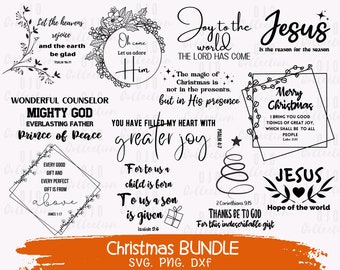 Let the heavens
rejoice
and the earth
be glad
PSALM 96:11
Oh come
Let us adore
Him
Joy to the
world
THE LORD HAS COME
Jesus
is the reason for the season
The magic of
Christmas is
not in the presents,
but in His presence
Merry
Christmas
I BRING YOU GOOD
TIDINGS OF GREAT JOY,
WHICH SHALL BE TO ALL
PEOPLE
Luke 2:10
WONDERFUL COUNSELOR
MIGHTY GOD
EVERLASTING FATHER
Prince of Peace
YOU HAVE FILLED MY HEART WITH
greater joy
PSALM 4:7
EVERY GOOD
GIFT AND EVERY
PERFECT
GIFT IS FROM
above
JAMES 1:17
For to us a
child is born
To us a son
is given
Isaiah 9:6
2 Corinthians 9:15
THANKS BE TO GOD
For this indescribable gift
JESUS
Hope of the world
Christmas BUNDLE
SVG, PNG, DXf